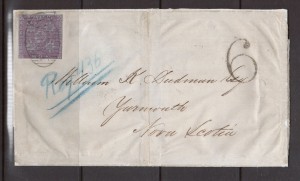 6
William K Dudman Esq
Yarmouth
Nova Scotia